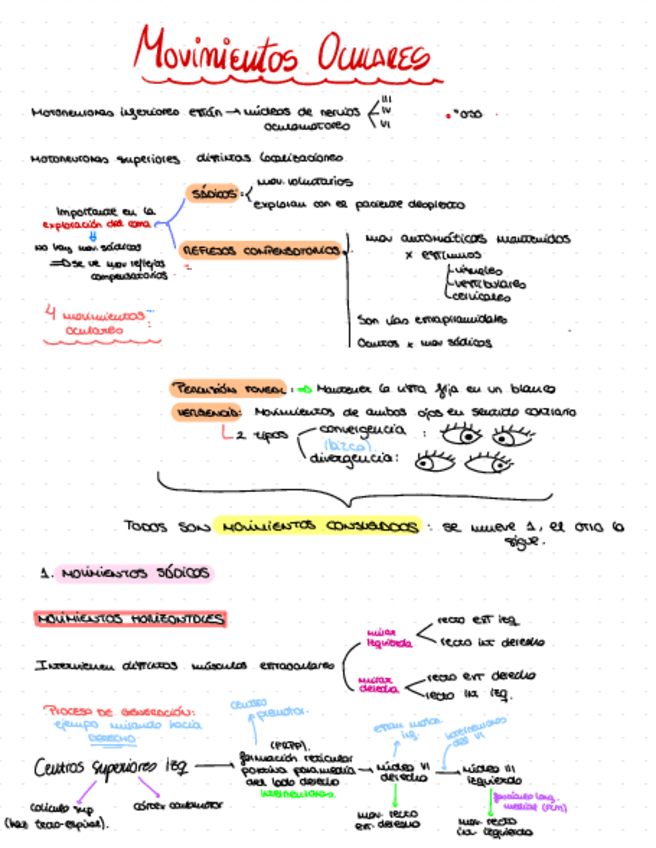 Movimientos Oculares
Motoneuronas inferiores están → núcleos de nervios III
oculomotores IV
VI
Motoneuronas superiores distintas localizaciones.
SÁDICOS: mov. voluntarios
exploran con el paciente despierto
Importante en la
exploración del coma
No hay mov. sádicos
⇒ se ve mov reflejos
compensatorios
REFLEJOS COMPENSATORIOS
mov automáticos mantenidos
x estímulos
visuales
vestibulares
cervicales
Son vías extrapiramidales
Ocultos x mov sádicos
4 movimientos
oculares
: ⇒ Mantener la vista fija en un blanco
VERGENCIA: Movimientos de ambos ojos en sentido contrario
2 tipos
convergencia :
(bizco)
divergencia:
TODOS SON MOVIMIENTOS CONJUGADOS : se mueve 1, el otro lo
sigue.
1. MOVIMIENTOS SÁDICOS
MOVIMIENTOS HORIZONTALES
Intervienen distintos músculos extraoculares
mirar
izquierda
recto ext izq
recto int derecho
mirar
derecha
recto ext derecho
recto int izq.
PROCESO DE GENERACIÓN:
ejemplo mirando hacia
DERECHO
centro
premotor.
Centros superiores izq → (FRPP).
formación reticular
pontina paramedia
del lado derecho
interneuronas.
→ núcleo VI
derecho
→ núcleo III
izquierdo
interneuronas
del VI
colículo sup
(haz tecto-espinal).
córtex
mov. recto
ext. derecho
fascículo long.
medial (FLM)
mov. recto
int. izquierdo